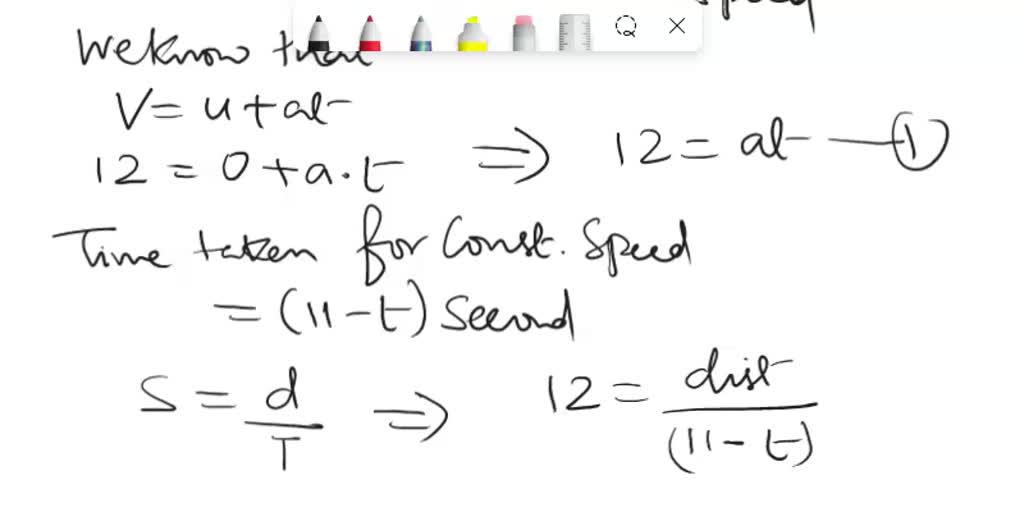 Speed
We know that
V = u + at
12 = 0 + a.t ⇒ 12 = at — ①
Time taken for Const. Speed
= (11 - t) Second
S = d/T ⇒ 12 = dist/(11 - t)